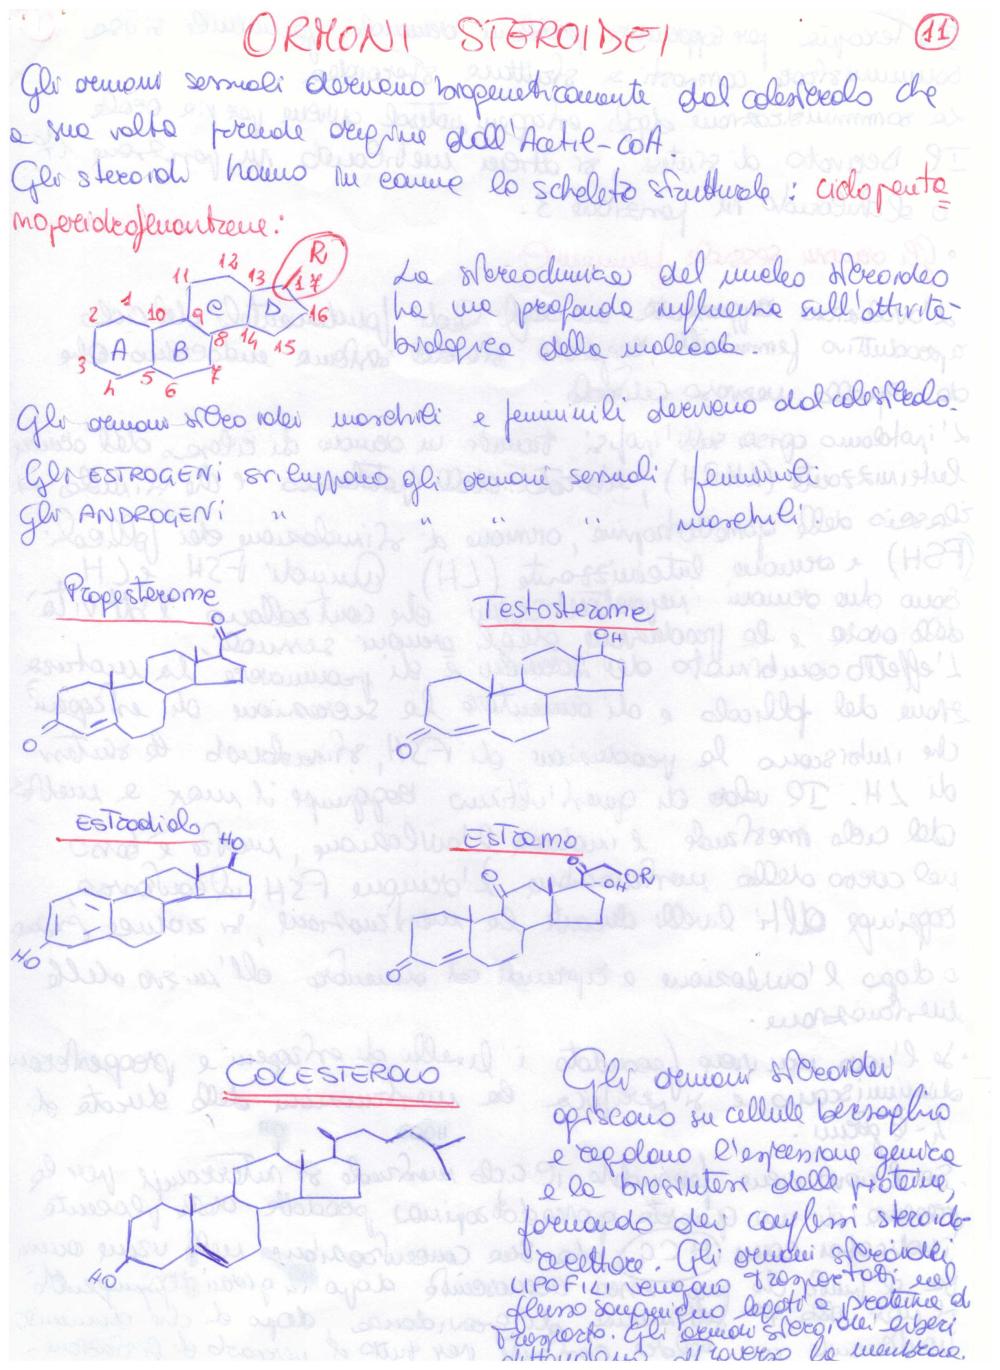 ORMONI STEROIDEI
11
Gli ormoni sessuali derivano biogeneticamente dal colesterolo che
a sua volta prende origine dall'Acetil-coA.
Gli steroidi hanno in comune lo scheletro strutturale: ciclopenta
noperidrofenantrene:
R
1 2 3 4 5 6 7 8 9 10 11 12 13 14 15 16 17
A B C D
La stereochimica del nucleo steroideo
ha una profonda influenza sull'attività
biologica della molecola.
Gli ormoni steroidei maschili e femminili derivano dal colesterolo.
Gli ESTROGENI sviluppano gli ormoni sessuali femminili.
Gli ANDROGENI " " " " maschili.
Progesterone
O
O
Testosterone
OH
O
Estradiolo
HO
HO
O
O
OH
OR
O
COLESTEROLO
HO
Gli ormoni steroidei
agiscono su cellule bersaglio
e regolano l'espressione genica
e la biosintesi delle proteine,
formando dei complessi steroide-
recettore. Gli ormoni steroidei
LIPOFILI vengono trasportati nel
flusso sanguigno legati a proteine di
trasporto. Gli ormoni steroidei liberi
attraverso la membrana.